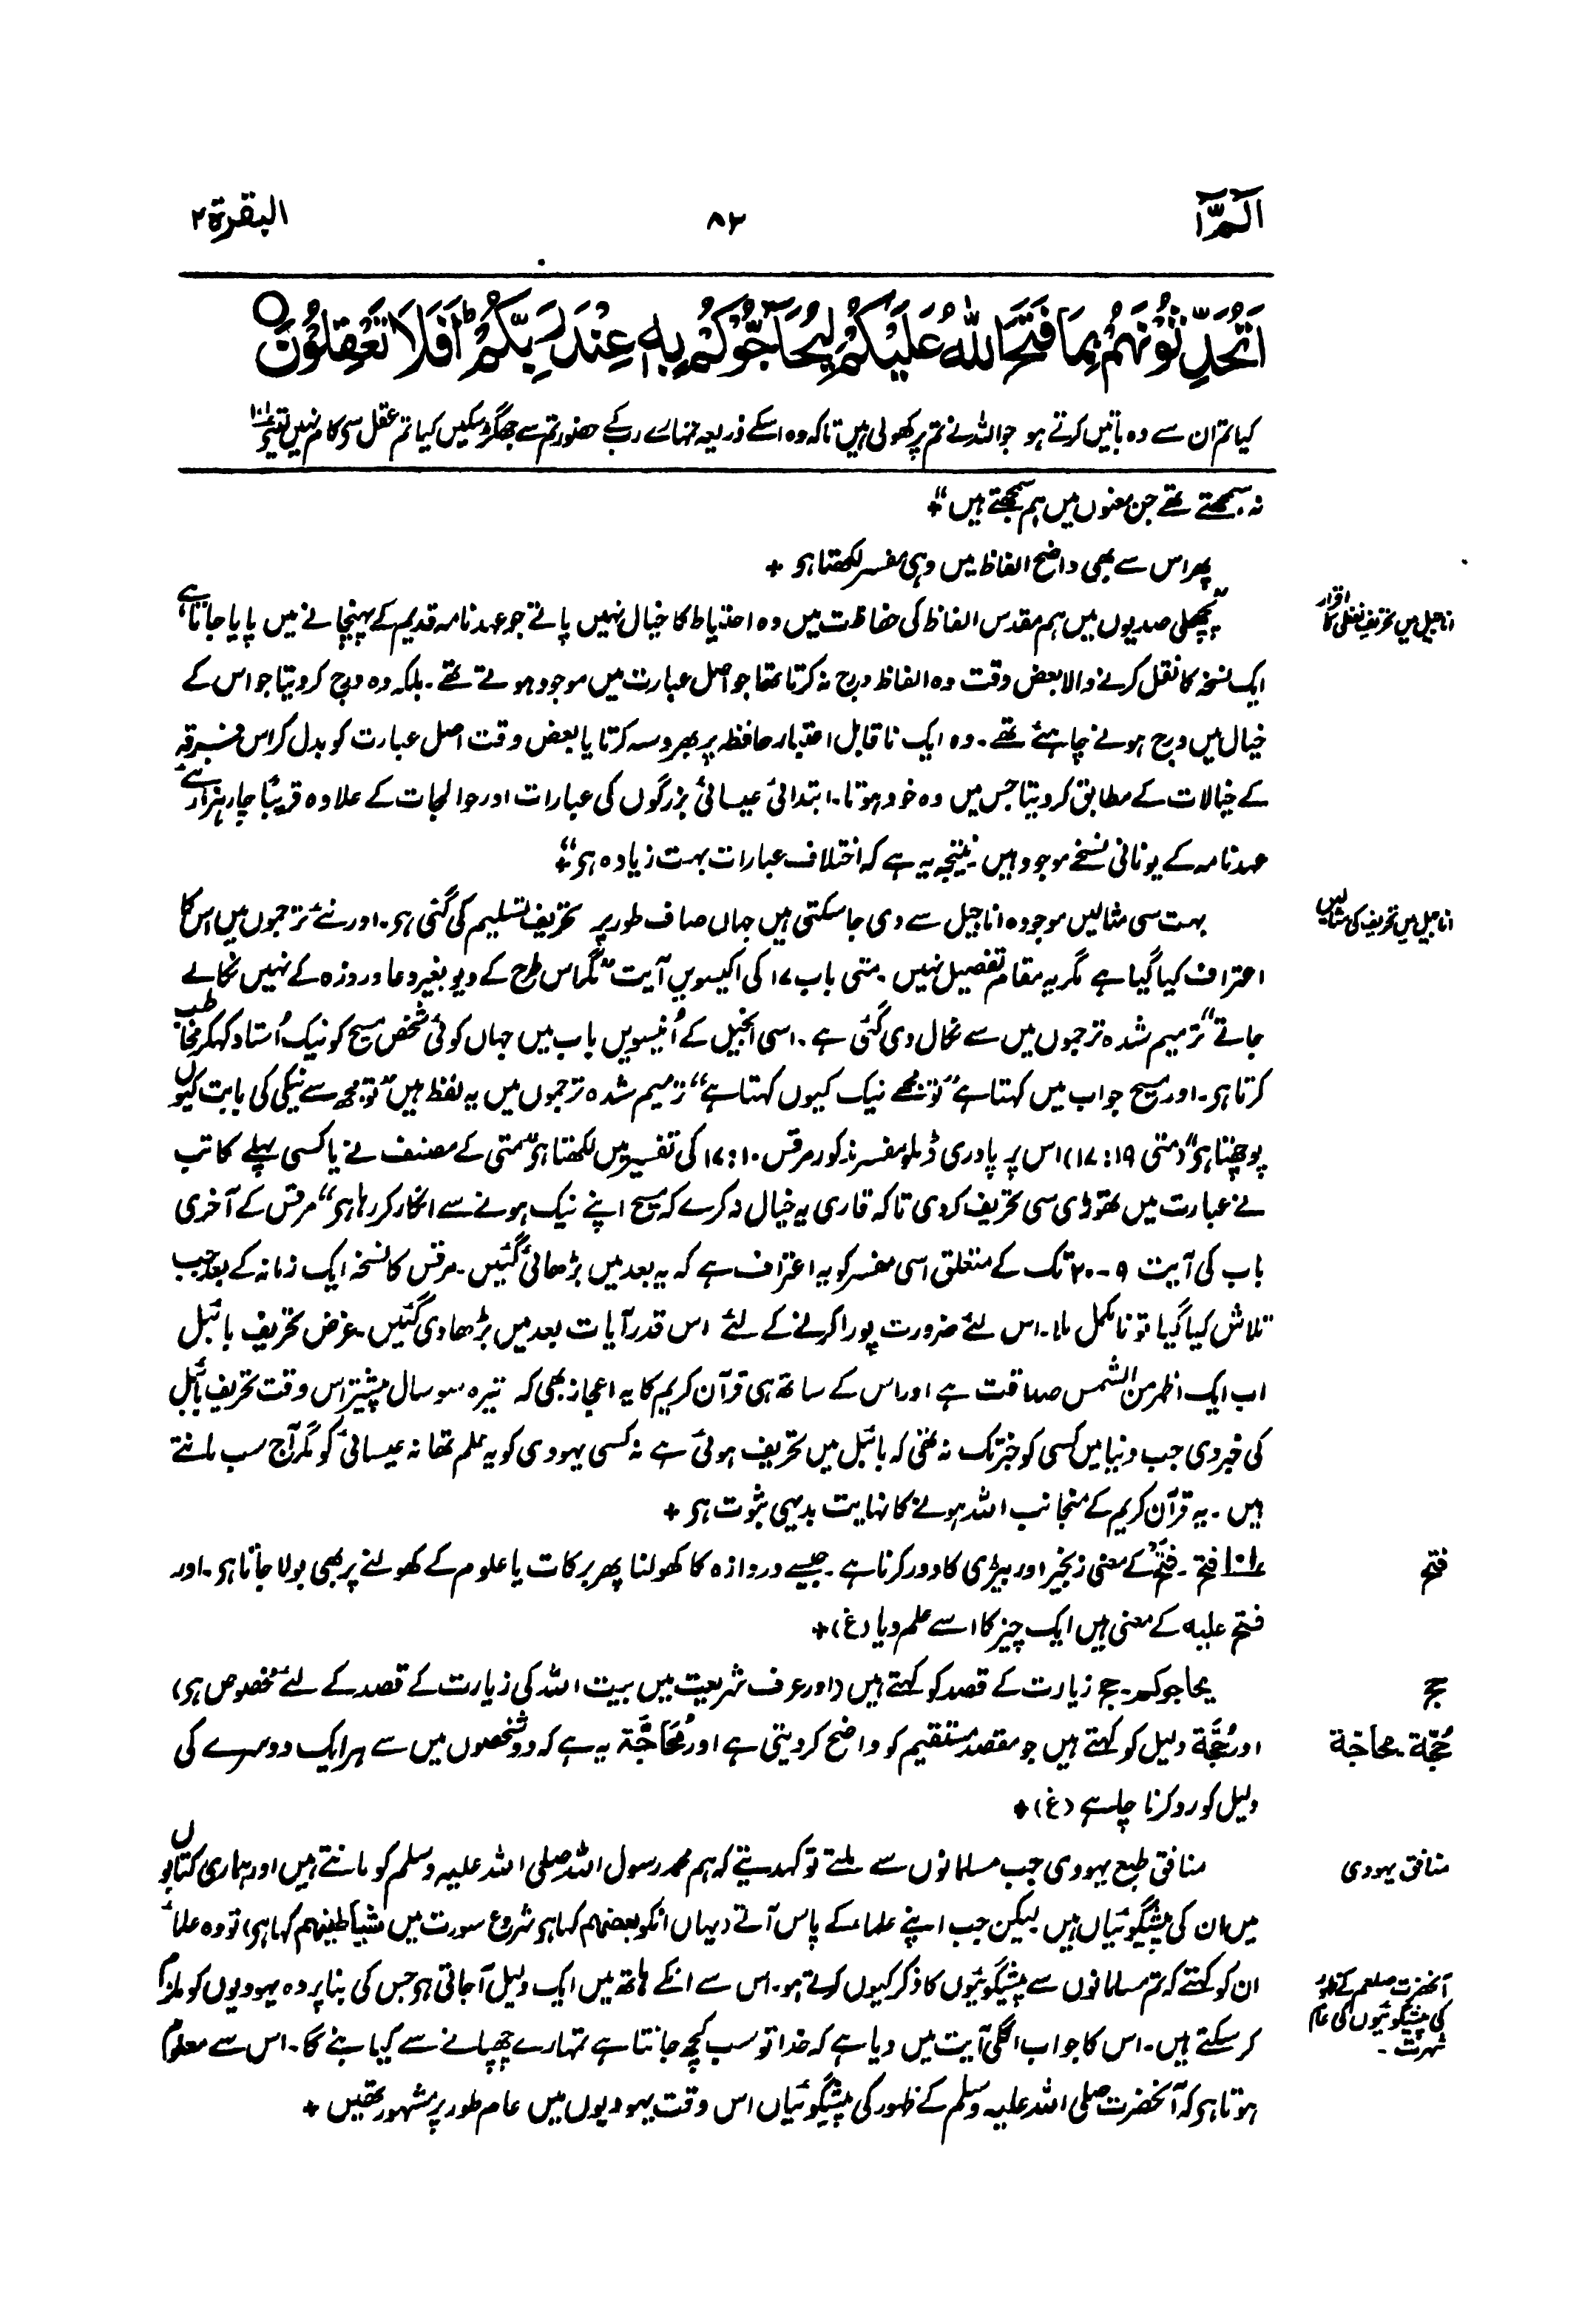 الٓمّٓ ١
٨٢
البقرة ٢
اَتُحَدِّثُوْنَهُمْ بِمَا فَتَحَ اللّٰهُ عَلَيْكُمْ لِيُحَآجُّوْكُمْ بِهٖ عِنْدَ رَبِّكُمْ ؕ اَفَلَا تَعْقِلُوْنَ ○
کیا تم ان سے وہ باتیں کرتے ہو جو اللہ نے تم پر کھولی ہیں تاکہ وہ اسکے ذریعہ تمہارے رب کے حضور تم سے جھگڑ سکیں کیا تم عقل سو کام نہیں لیتے ۱۰۱
نہ سمجھتے تھے جن معنوں میں ہم سمجھتے ہیں“ +
پھر اس سے بھی واضح الفاظ میں وہی مفسر لکھتا ہو +
اناجیل میں تحریف لفظی کا اقرار
”پچھلی صدیوں میں ہم مقدس الفاظ کی حفاظت میں وہ احتیاط کا خیال نہیں پاتے جو عہدنامہ قدیم کے پہنچانے میں پایا جاتا ہے،
ایک نسخہ کا نقل کرنے والا بعض وقت وہ الفاظ درج نہ کرتا تھا جو اصل عبارت میں موجود ہوتے تھے۔ بلکہ وہ درج کر دیتا جو اس کے
خیال میں درج ہونے چاہئے تھے۔ وہ ایک ناقابل اعتبار حافظہ پر بھروسہ کرتا یا بعض وقت اصل عبارت کو بدل کر اس فرقہ
کے خیالات کے مطابق کر دیتا جس میں وہ خود ہوتا۔ ابتدائی عیسائی بزرگوں کی عبارات اور حوالجات کے علاوہ قریبًا چار ہزار نئے
عہدنامہ کے یونانی نسخے موجود ہیں۔ نتیجہ یہ ہے کہ اختلاف عبارات بہت زیادہ ہو“ +
اناجیل میں تحریف کی مثالیں
بہت سی مثالیں موجودہ اناجیل سے دی جا سکتی ہیں جہاں صاف طور پر تحریف تسلیم کی گئی ہو۔ اور نئے ترجموں میں اس کا
اعتراف کیا گیا ہے مگر یہ مقام تفصیل نہیں۔ متی باب ۱۷ کی اکیسویں آیت ”مگر اس طرح کے دیو بغیر دعا و روزہ کے نہیں نکالے
جاتے“ ترمیم شدہ ترجموں میں سے نکال دی گئی ہے۔ اسی انجیل کے اُنیسویں باب میں جہاں کوئی شخص مسیح کو نیک اُستاد کہکر مخاطب
کرتا ہو۔ اور مسیح جواب میں کہتا ہے ”تو مجھے نیک کیوں کہتا ہے“ ترمیم شدہ ترجموں میں یہ لفظ ہیں ”تو مجھ سے نیکی کی بابت کیوں
پوچھتا ہو“ (متی ۱۹: ۱۷) اس پر پادری ڈملو مفسر مذکور مرقس ۱۰: ۱۷ کی تفسیر میں لکھتا ہو ”متی کے مصنف نے یا کسی پہلے کاتب
نے عبارت میں تھوڑی سی تحریف کر دی تاکہ قاری یہ خیال نہ کرے کہ مسیح اپنے نیک ہونے سے انکار کر رہا ہو“ مرقس کے آخری
باب کی آیت ۹-۲۰ تک کے متعلق اسی مفسر کو یہ اعتراف ہے کہ یہ بعد میں بڑھائی گئیں۔ مرقس کا نسخہ ایک زمانہ کے بعد جب
تلاش کیا گیا تو نامکمل ملا۔ اس لئے ضرورت پورا کرنے کے لئے اس قدر آیات بعد میں بڑھا دی گئیں۔ غرض تحریف بائبل
اب ایک اظہر من الشمس صداقت ہے اور اس کے ساتھ ہی قرآن کریم کا یہ اعجاز بھی کہ تیرہ سو سال پیشتر اس وقت تحریف بائبل
کی خبر دی جب دنیا میں کسی کو خبر تک نہ تھی کہ بائبل میں تحریف ہوئی ہے نہ کسی یہودی کو یہ علم تھا نہ عیسائی کو مگر آج سب مانتے
ہیں۔ یہ قرآن کریم کے منجانب اللہ ہونے کا نہایت بدیہی ثبوت ہو +
فتح
۱۰۱ فتح۔ فَتْح کے معنی زنجیر اور بیڑی کا دور کرنا ہے۔ جیسے دروازہ کا کھولنا پھر برکات یا علوم کے کھولنے پر بھی بولا جاتا ہو۔ اور
فتح علیه کے معنی ہیں ایک چیز کا اسے علم دیا (غ) +
حج
یحاجوکم۔ حج زیارت کے قصد کو کہتے ہیں (اور عرف شریعت میں بیت اللہ کی زیارت کے قصد کے لئے مخصوص ہو)
حُجّة۔ محاجّة
اور حُجَّة دلیل کو کہتے ہیں جو مقصد مستقیم کو واضح کر دیتی ہے اور مُحَاجَّة یہ ہے کہ دو شخصوں میں سے ہر ایک دوسرے کی
دلیل کو رد کرنا چاہے (غ) +
منافق یہودی
منافق طبع یہودی جب مسلمانوں سے ملتے تو کہدیتے کہ ہم محمد رسول اللہ صلی اللہ علیہ وسلم کو مانتے ہیں اور ہماری کتابوں
میں ان کی پیشگوئیاں ہیں لیکن جب اپنے علماء کے پاس آتے (یہاں انکو بعضھم کہا ہو شروع سورت میں شیاطینھم کہا ہو) تو وہ علماء
آنحضرت صلعم کے ظہور کی پیشگوئیوں کی عام شہرت۔
ان کو کہتے کہ تم مسلمانوں سے پیشگوئیوں کا ذکر کیوں کرتے ہو۔ اس سے انکے ہاتھ میں ایک دلیل آ جاتی ہو جس کی بنا پر وہ یہودیوں کو ملزم
کر سکتے ہیں۔ اس کا جواب اگلی آیت میں دیا ہے کہ خدا تو سب کچھ جانتا ہے تمہارے چھپانے سے کیا بنے گا۔ اس سے معلوم
ہوتا ہو کہ آنحضرت صلی اللہ علیہ وسلم کے ظہور کی پیشگوئیاں اس وقت یہودیوں میں عام طور پر مشہور تھیں +